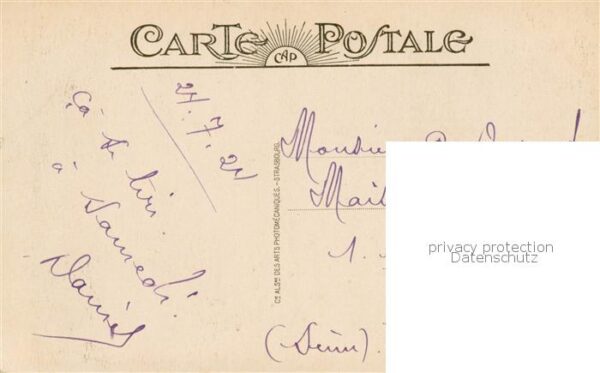 CARTE POSTALE
CAP
21.7.21
Ça se tire.
à Samedi.
Daniel
Cie ALSne DES ARTS PHOTOMÉCANIQUES. - STRASBOURG.
Monsieur
1.
(Seine).
privacy protection
Datenschutz